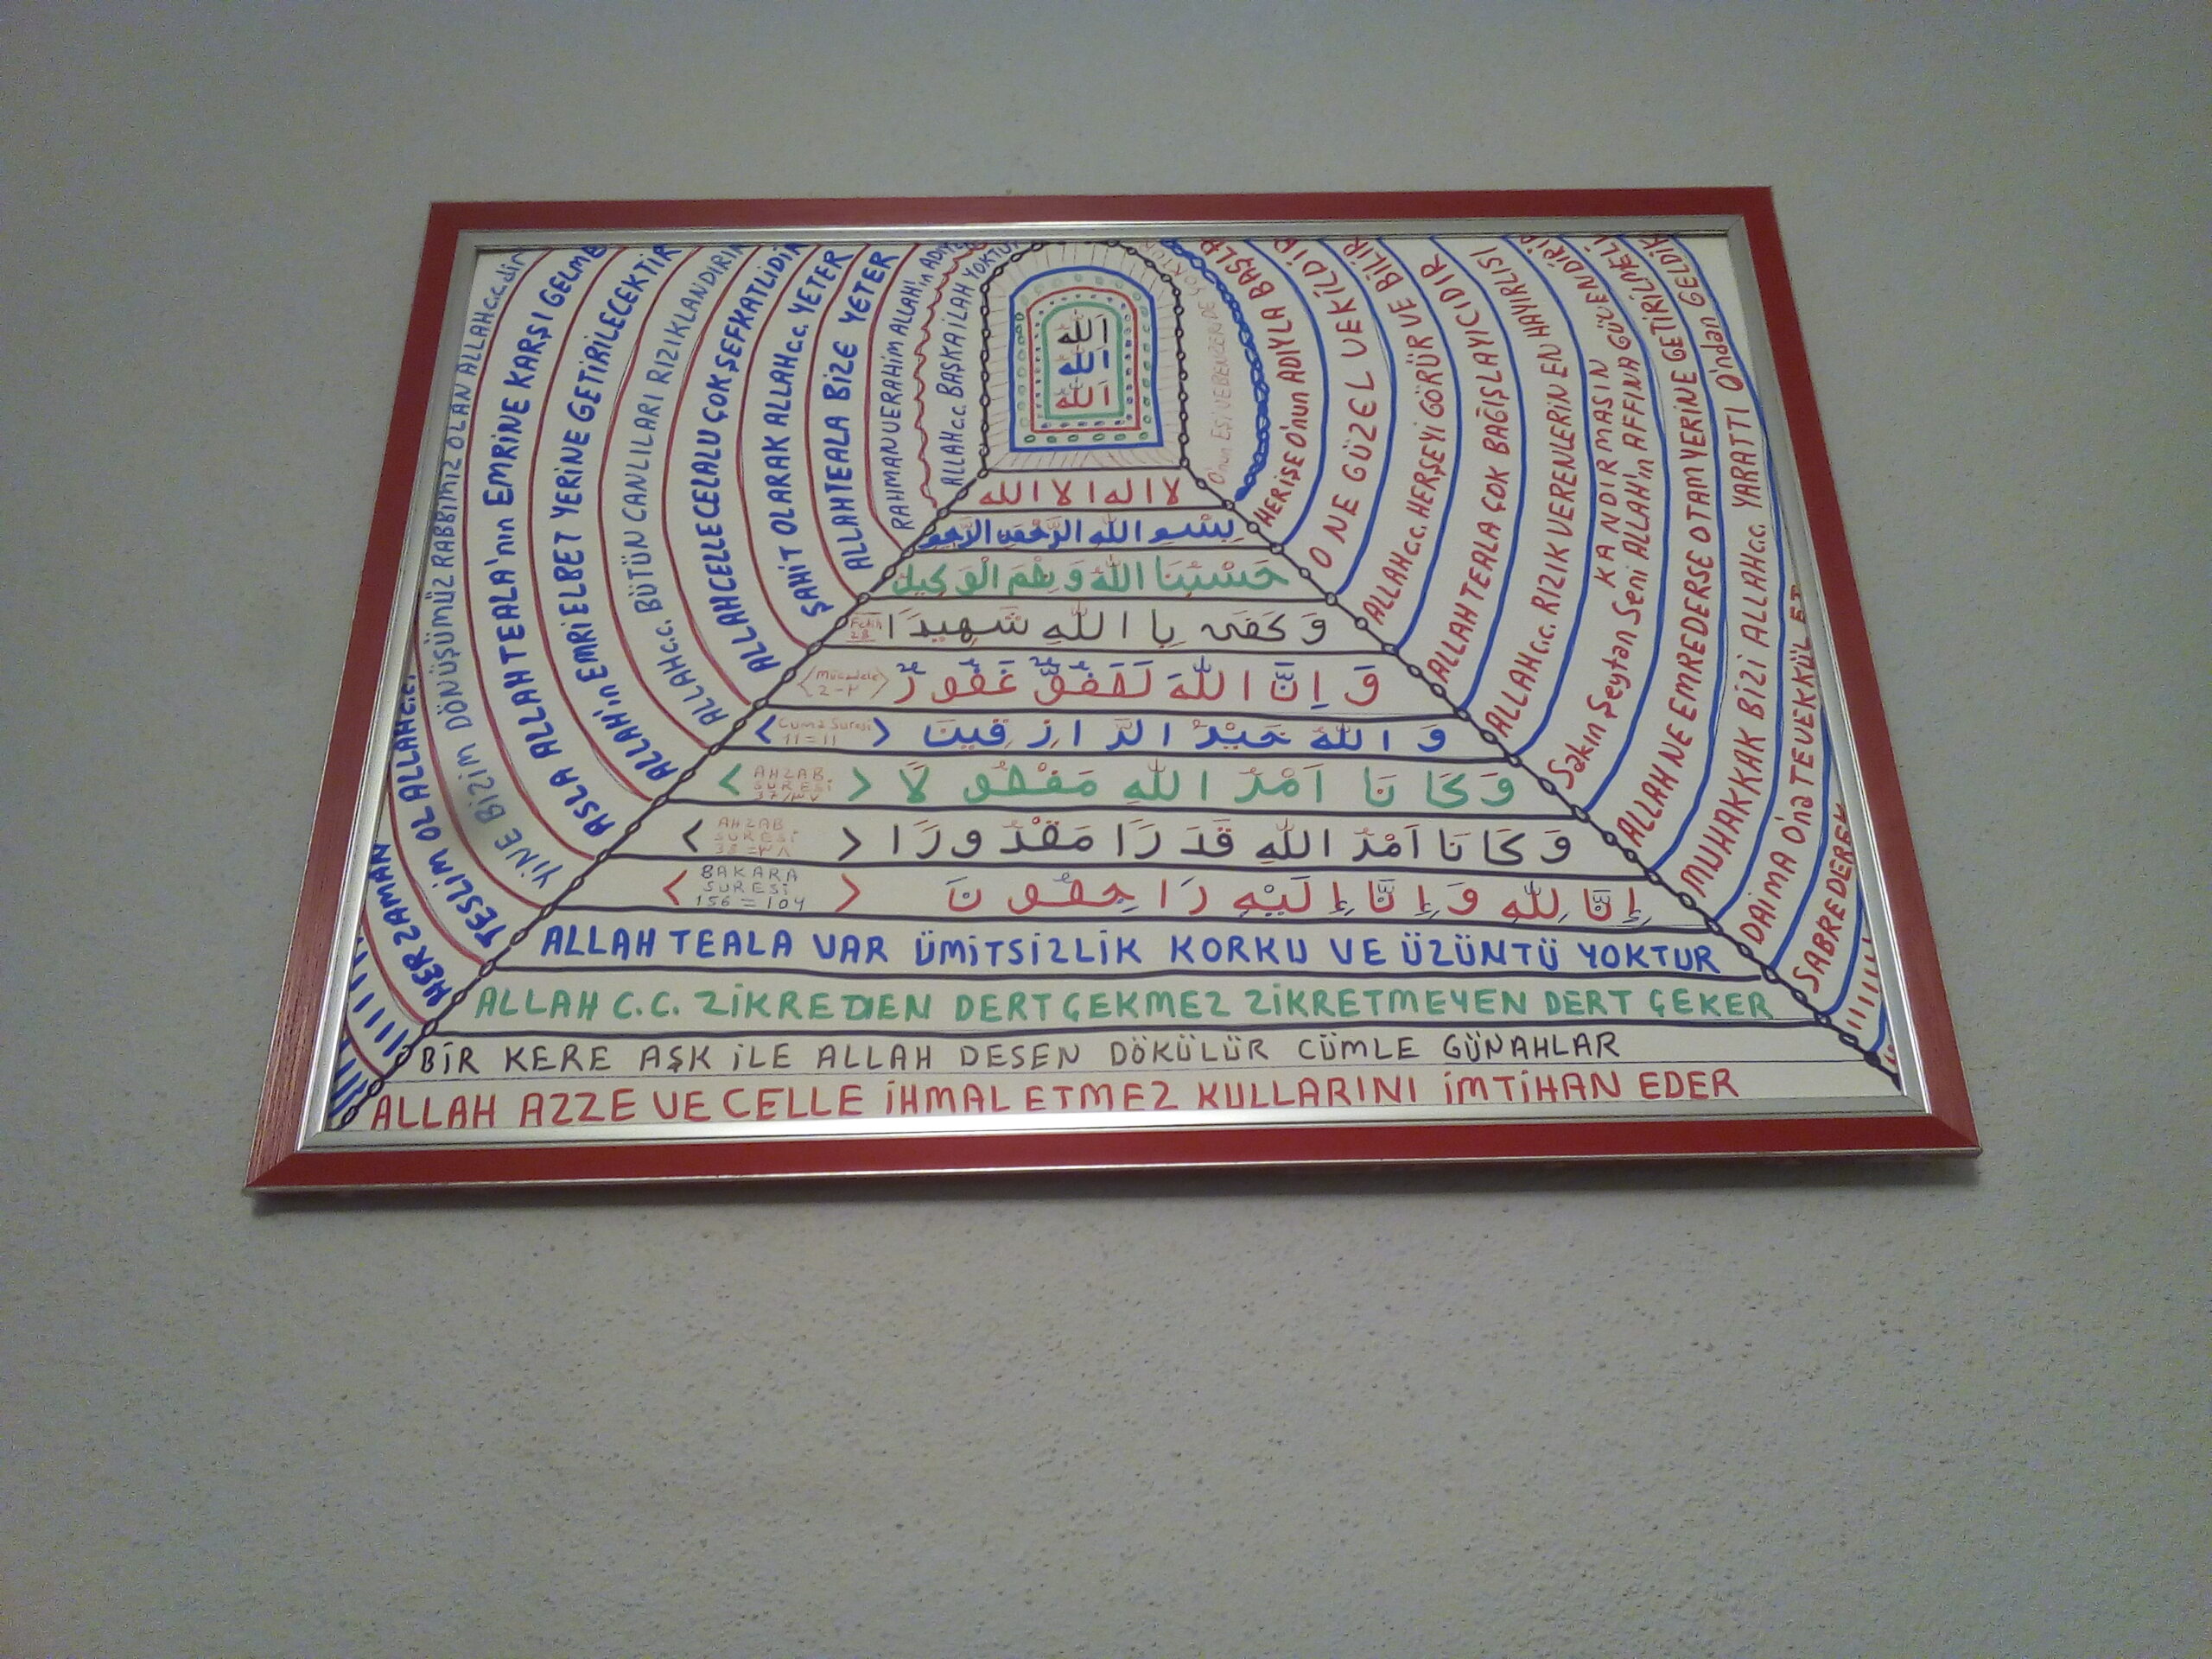 الله
الله
الله
لا اله الا الله
بسم الله الرحمن الرحيم
حَسْبُنَا اللهُ وَ نِعْمَ الْوَكِيل
وَ كَفَى بِا اللهِ شَهِيدًا
Fetih 28
وَ اِنَّ اللهَ لَعَفُوٌّ غَفُورٌ
<Mücadele 2-٢>
وَ اللهُ خَيْرُ الرَّ ازِقِينَ
<Cuma Suresi 11=11>
وَكَا نَا اَمْرُ اللهِ مَفْعُو لًا
<AHZAB SURESİ 37/٣٧>
وَ كَا نَا اَمْرُ اللهِ قَدَ رًا مَقْدُ ورًا
<AHZAB SURESİ 38=٣٨>
إِنَّا لِلّهِ وَ إِنَّا إِلَيْهِ رَا جِعُو نَ
<BAKARA SURESİ 156=104>
ALLAH TEALA VAR ÜMİTSİZLİK KORKU VE ÜZÜNTÜ YOKTUR
ALLAH C.C. ZİKREDEN DERT ÇEKMEZ ZİKRETMEYEN DERT ÇEKER
BİR KERE AŞK İLE ALLAH DESEN DÖKÜLÜR CÜMLE GÜNAHLAR
ALLAH AZZE VE CELLE İHMAL ETMEZ KULLARINI İMTİHAN EDER
ALLAH c.c. BAŞKA İLAH YOKTUR
RAHMAN VE RAHİM ALLAH'ın ADIYLA
ALLAH TEALA BİZE YETER
ŞAHİT OLARAK ALLAH c.c. YETER
ALLAH CELLE CELALU ÇOK ŞEFKATLİDİR
ALLAH c.c. BÜTÜN CANLILARI RIZIKLANDIRIR
ALLAH'ın EMRİ ELBET YERİNE GETİRİLECEKTİR
ASLA ALLAH TEALA'nın EMRİNE KARŞI GELME
YİNE BİZİM DÖNÜŞÜMÜZ RABBİMİZ OLAN ALLAH c.c. dir
TESLİM OL ALLAH c.c.
HER ZAMAN
O'nun EŞİ VE BENZERİ DE YOKTUR
HER İŞE O'nun ADIYLA BAŞLA
O NE GÜZEL VEKİLDİR
ALLAH c.c. HERŞEYİ GÖRÜR VE BİLİR
ALLAH TEALA ÇOK BAĞIŞLAYICIDIR
ALLAH c.c. RIZIK VERENLERİN EN HAYIRLISI
Sakın Şeytan Seni ALLAH'ın AFFINA GÜVENDİRİP
KANDIRMASIN
ALLAH NE EMREDERSE O TAM YERİNE GETİRİLMELİ
MUHAKKAK BİZİ ALLAH c.c. YARATTI O'ndan GELDİK
DAİMA O'na TEVEKKÜL ET
SABREDEREK